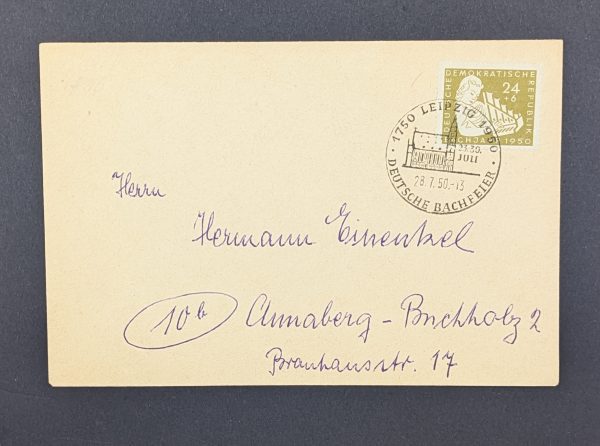 DEUTSCHE DEMOKRATISCHE REPUBLIK
24
+6
BACHJAHR 1950
1750 LEIPZIG 1950
23.-30.
JULI
28.7.50.-13
· DEUTSCHE BACHFEIER ·
Herrn
Hermann Einenkel
10b Annaberg - Buchholz 2
Brauhausstr. 17